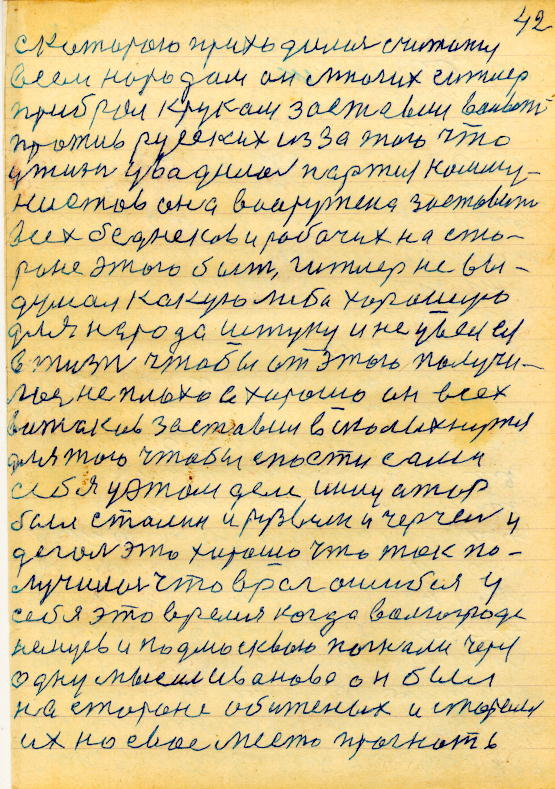 42
с которого приходилося считать
всем народам он многих гитлер
прибрал к рукам заставил воивать
против русских из за того что
у жизни увадилася партия комму-
нистов она вооружена заставить
всех беднеков и робочих на сто-
роне этого быть, гитлер не вы-
думал какую либа хорошую
для народа штуку и не увел ся
в жизни чтобы от этого получи-
лось не плохо а хорошо он всех
заставил всполыхнутся
для того чтобы спости сами
себя у этом деле инициатор
был сталин и рузвельт и черчель и
деголь это хорошо что так по-
лучилося что враг ошибся у
себя это время когда волгограде
немцев и под москвою погнали через
одну мысель Иванова он был
на стороне обиженых и
их но свое место прогнать